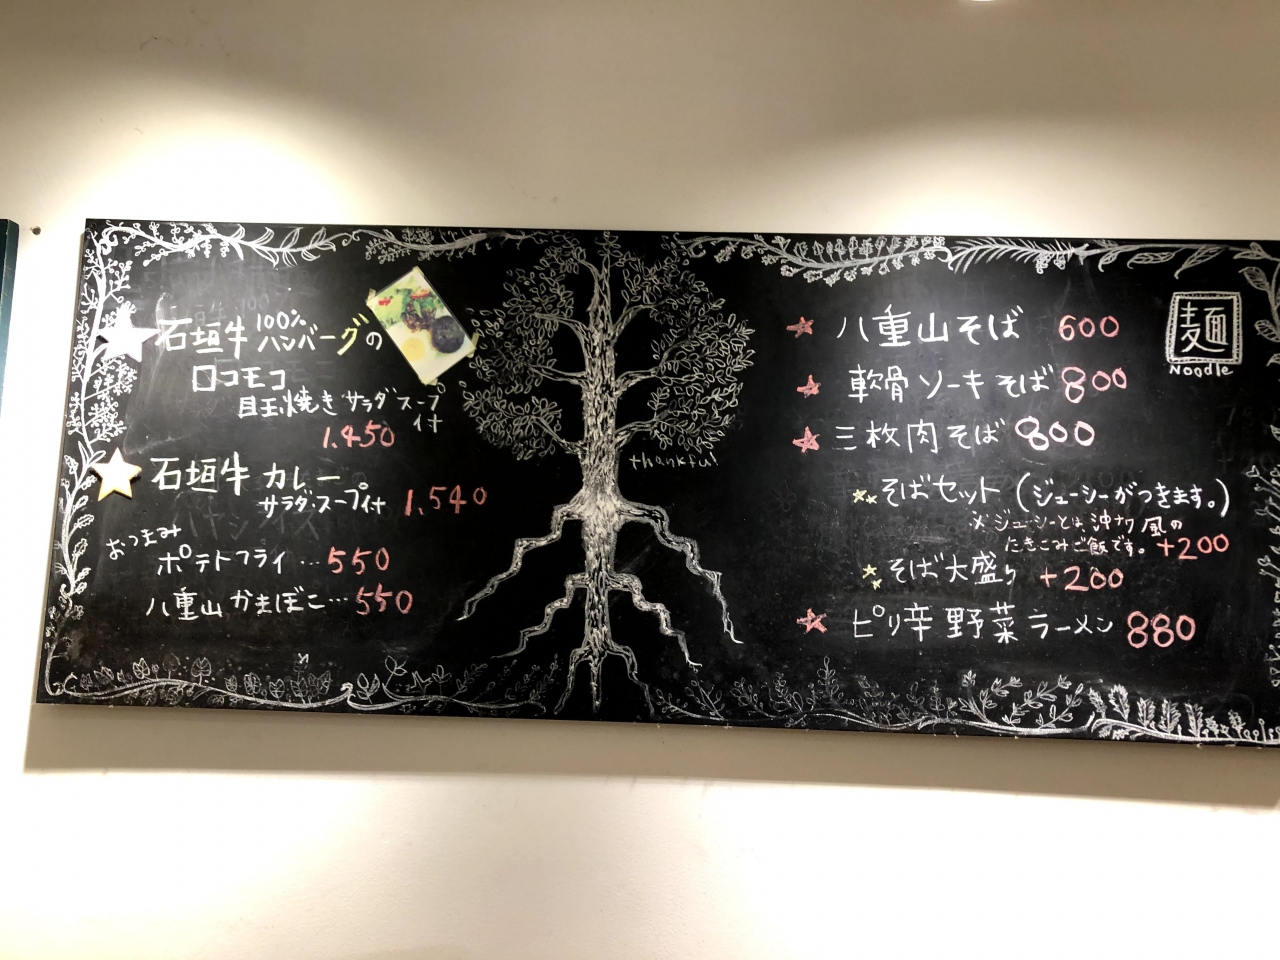 石垣牛 100% ハンバーグの
ロコモコ
目玉焼き サラダ スープ付
1,450
石垣牛 カレー
サラダ・スープ付 1,540
おつまみ
ポテトフライ … 550
八重山かまぼこ … 550
thankful
麺
Noodle
八重山そば 600
軟骨ソーキそば 800
三枚肉そば 800
そばセット (ジューシーがつきます。)
※ジューシーとは、沖ナワ風の
たきこみご飯です。 +200
そば大盛り +200
ピリ辛野菜ラーメン 880